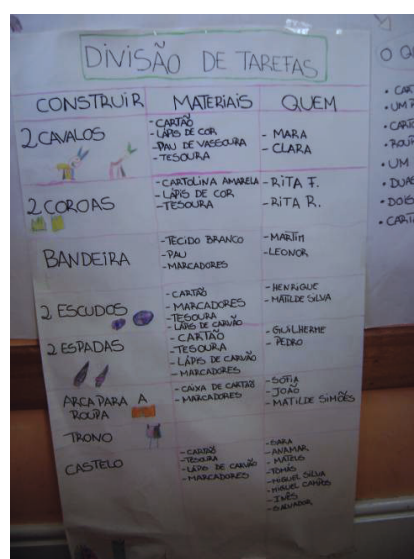 DIVISÃO DE TAREFAS
CONSTRUIR MATERIAIS QUEM
2 CAVALOS
- CARTÃO
- LÁPIS DE COR
- PAU DE VASSOURA
- TESOURA
- MARA
- CLARA
2 COROAS
- CARTOLINA AMARELA
- LÁPIS DE COR
- TESOURA
- RITA F.
- RITA R.
BANDEIRA
- TECIDO BRANCO
- PAU
- MARCADORES
- MARTIM
- LEONOR
2 ESCUDOS
- CARTÃO
- MARCADORES
- TESOURA
- LÁPIS DE CARVÃO
- HENRIQUE
- MATILDE SILVA
2 ESPADAS
- CARTÃO
- TESOURA
- LÁPIS DE CARVÃO
- MARCADORES
- GUILHERME
- PEDRO
ARCA PARA A
ROUPA
- CAIXA DE CARTÃO
- MARCADORES
- SOFIA
- JOÃO
- MATILDE SIMÕES
TRONO
CASTELO
- CARTÃO
- TESOURA
- LÁPIS DE CARVÃO
- MARCADORES
- SARA
- ANAMAR
- MATEUS
- TOMÁS
- MIGUEL SILVA
- INÊS
- SALVADOR
O
• UM
• DUAS
• DOIS